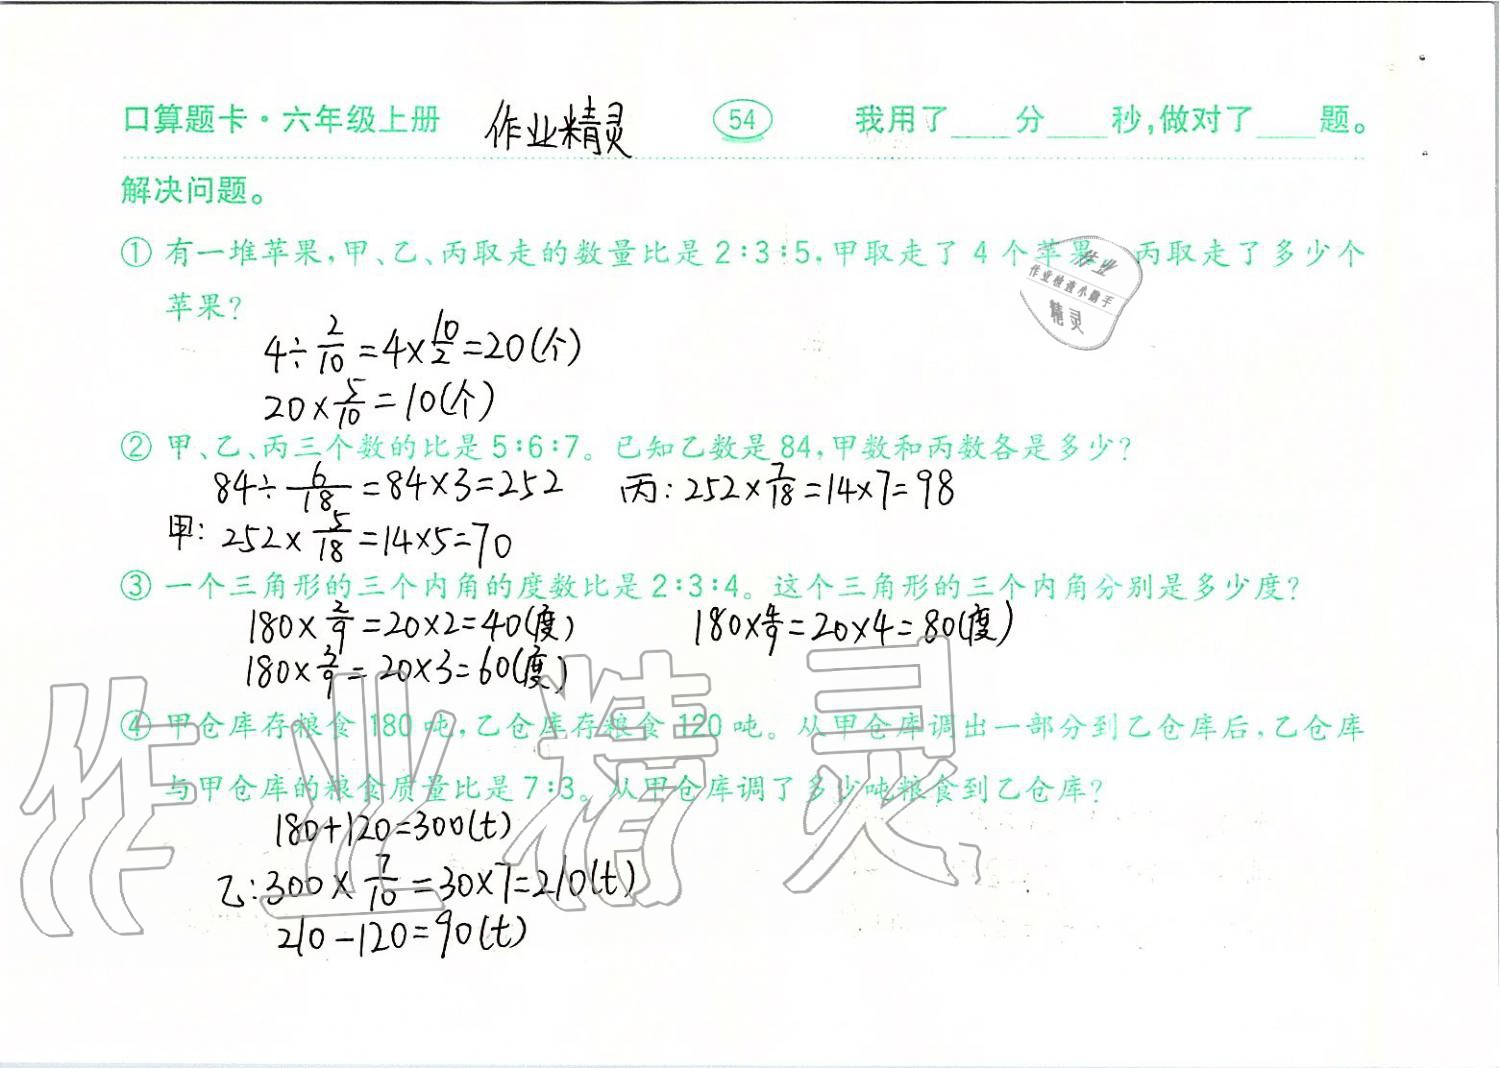 口算题卡·六年级上册 作业精灵 54 我用了____分____秒,做对了____题。
解决问题。
① 有一堆苹果,甲、乙、丙取走的数量比是2:3:5,甲取走了4个苹果,丙取走了多少个
苹果?
4÷2/10=4×10/2=20(个)
20×5/10=10(个)
② 甲、乙、丙三个数的比是5:6:7。已知乙数是84,甲数和丙数各是多少?
84÷6/18=84×3=252 丙:252×7/18=14×7=98
甲:252×5/18=14×5=70
③ 一个三角形的三个内角的度数比是2:3:4。这个三角形的三个内角分别是多少度?
180×2/9=20×2=40(度) 180×4/9=20×4=80(度)
180×3/9=20×3=60(度)
④ 甲仓库存粮食180吨,乙仓库存粮食120吨。从甲仓库调出一部分到乙仓库后,乙仓库
与甲仓库的粮食质量比是7:3。从甲仓库调了多少吨粮食到乙仓库?
180+120=300(t)
乙:300×7/10=30×7=210(t)
210-120=90(t)
作业
作业检查小助手
精灵
作业精灵